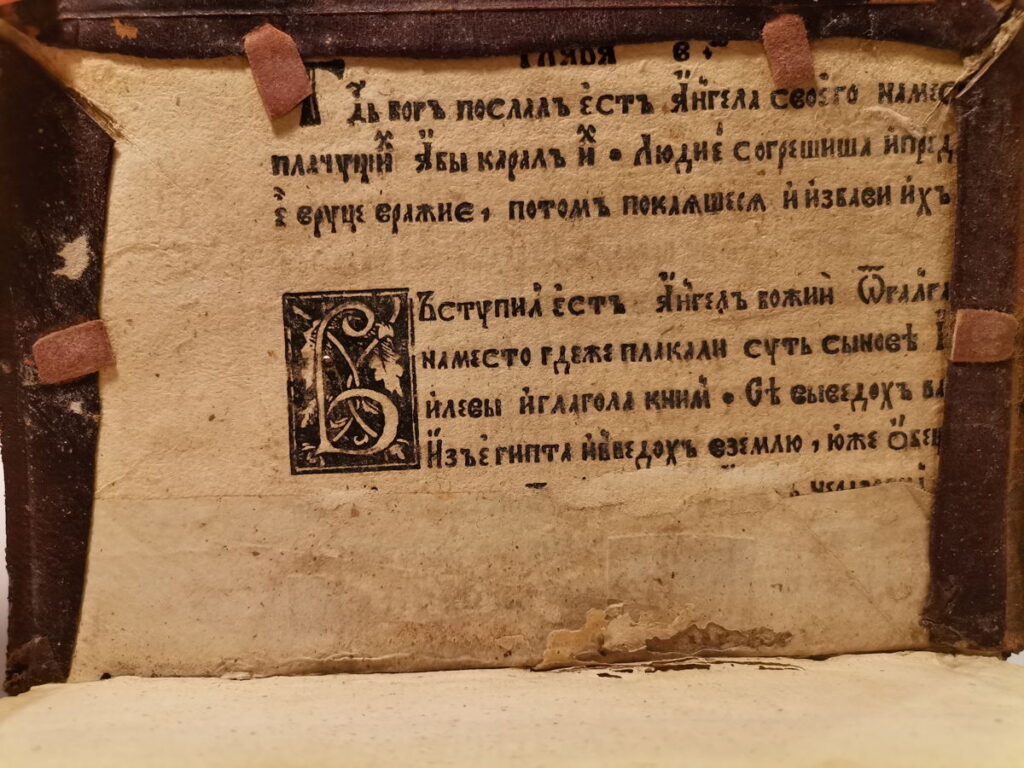 Глава в҃
Гдь богъ послалъ єсть а҆нгела своєго намес
плачущих а҆бы каралъ и҆х . Людиє согрешиша и҆пред
є҆ вруце вражиє, потомъ покаѧшесѧ и҆ и҆збави и҆хъ
Въступил єсть а҆нгелъ божии ѿгалга
наместо гдеже плакали суть сыновѣ
и҆левы и҆глагола кним . Сѣ выведохъ ва
и҆зъє҆гипта и҆введохъ вземлю, ю҆же ѻ҆бещ